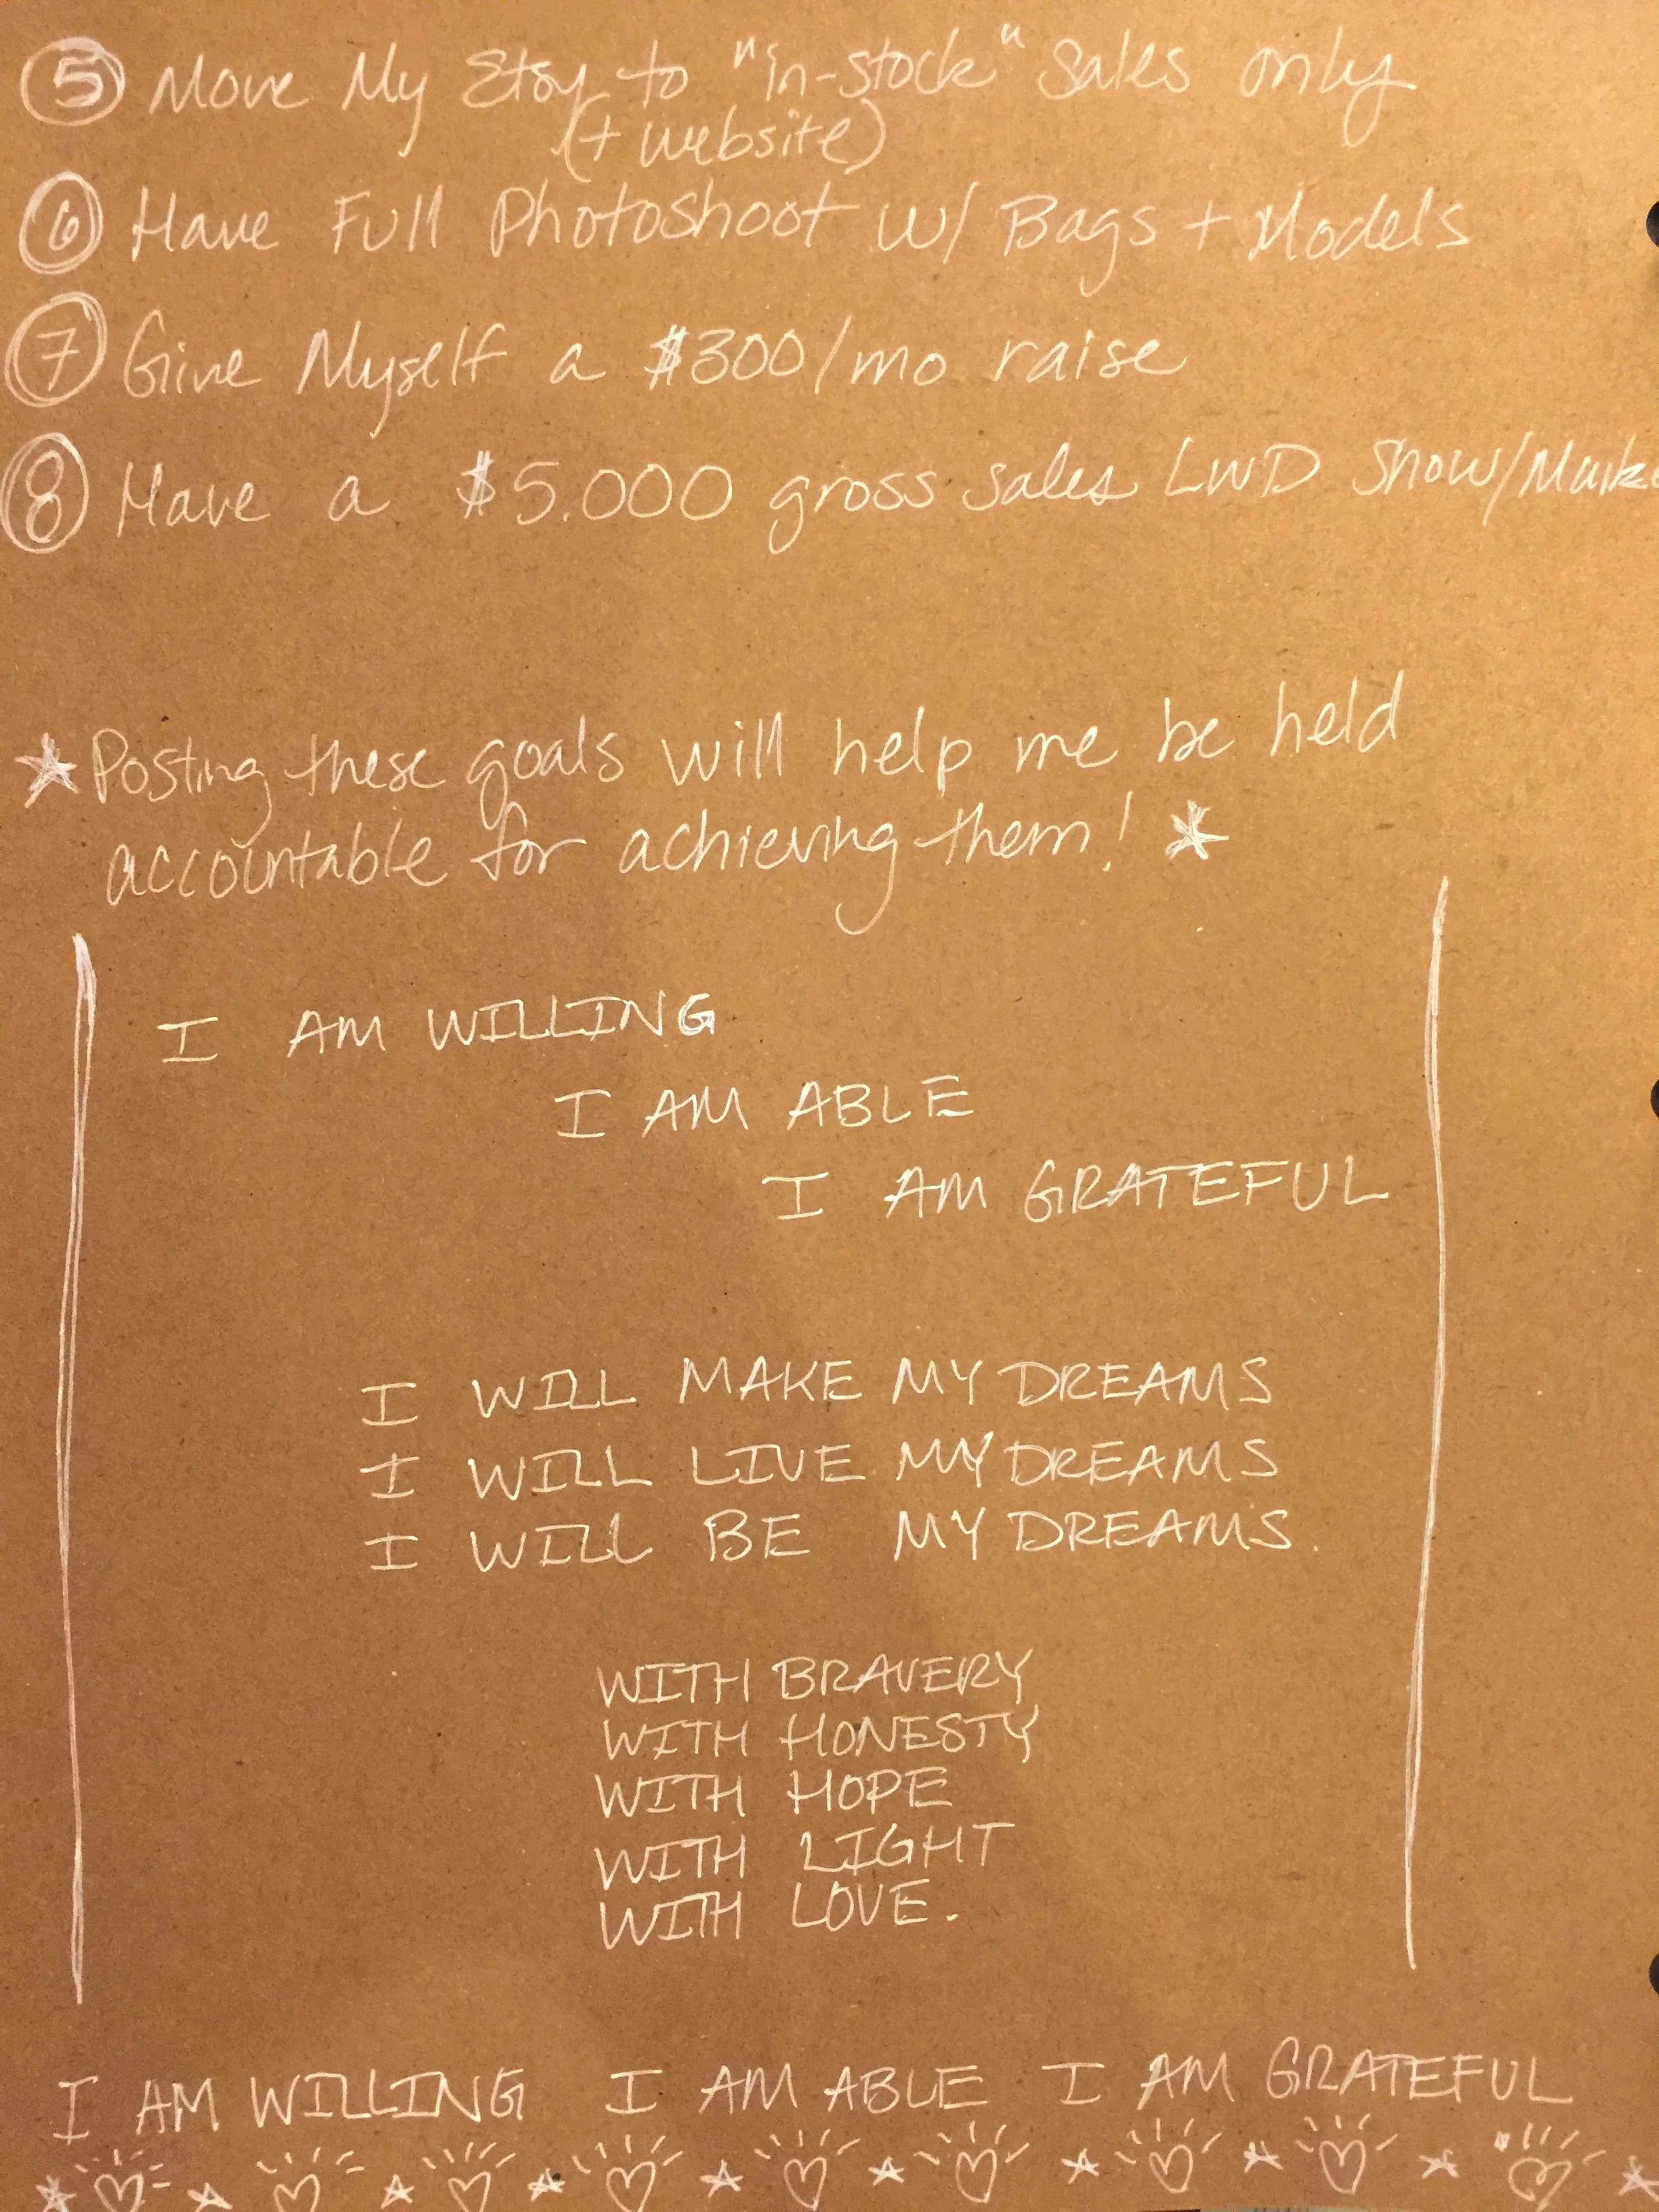 5 Move My Etsy to "in-stock" Sales only
(+ website)
6 Have Full Photoshoot w/ Bags + Models
7 Give Myself a $300/mo raise
8 Have a $5.000 gross sales LWD Show/Marke
Posting these goals will help me be held
accountable for achieving them!
I AM WILLING
I AM ABLE
I AM GRATEFUL
I WILL MAKE MY DREAMS
I WILL LIVE MY DREAMS
I WILL BE MY DREAMS.
WITH BRAVERY
WITH HONESTY
WITH HOPE
WITH LIGHT
WITH LOVE.
I AM WILLING I AM ABLE I AM GRATEFUL